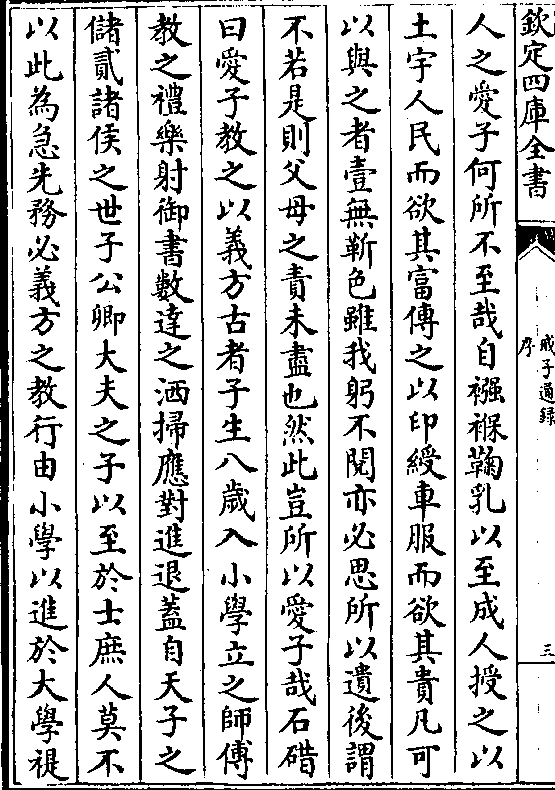 欽定四庫全書
戒子通録
序
三
人之愛子何所不至哉自襁褓鞠乳以至成人授之以
土宇人民而欲其富傳之以印綬車服而欲其貴凡可
以與之者壹無靳色雖我躬不閱亦必思所以遺後謂
不若是則父母之責未盡也然此豈所以愛子哉石碏
曰愛子教之以義方古者子生八歲入小學立之師傅
教之禮樂射御書數達之洒掃應對進退蓋自天子之
儲貳諸侯之世子公卿大夫之子以至於士庶人莫不
以此為急先務必義方之教行由小學以進於大學禔